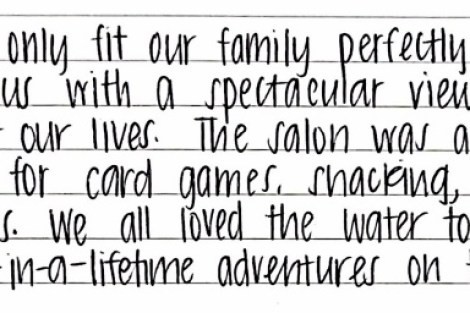 only fit our family perfectly
us with a spectacular view
our lives. The salon was a
for card games, snacking,
s. We all loved the water to
-in-a-lifetime adventures on